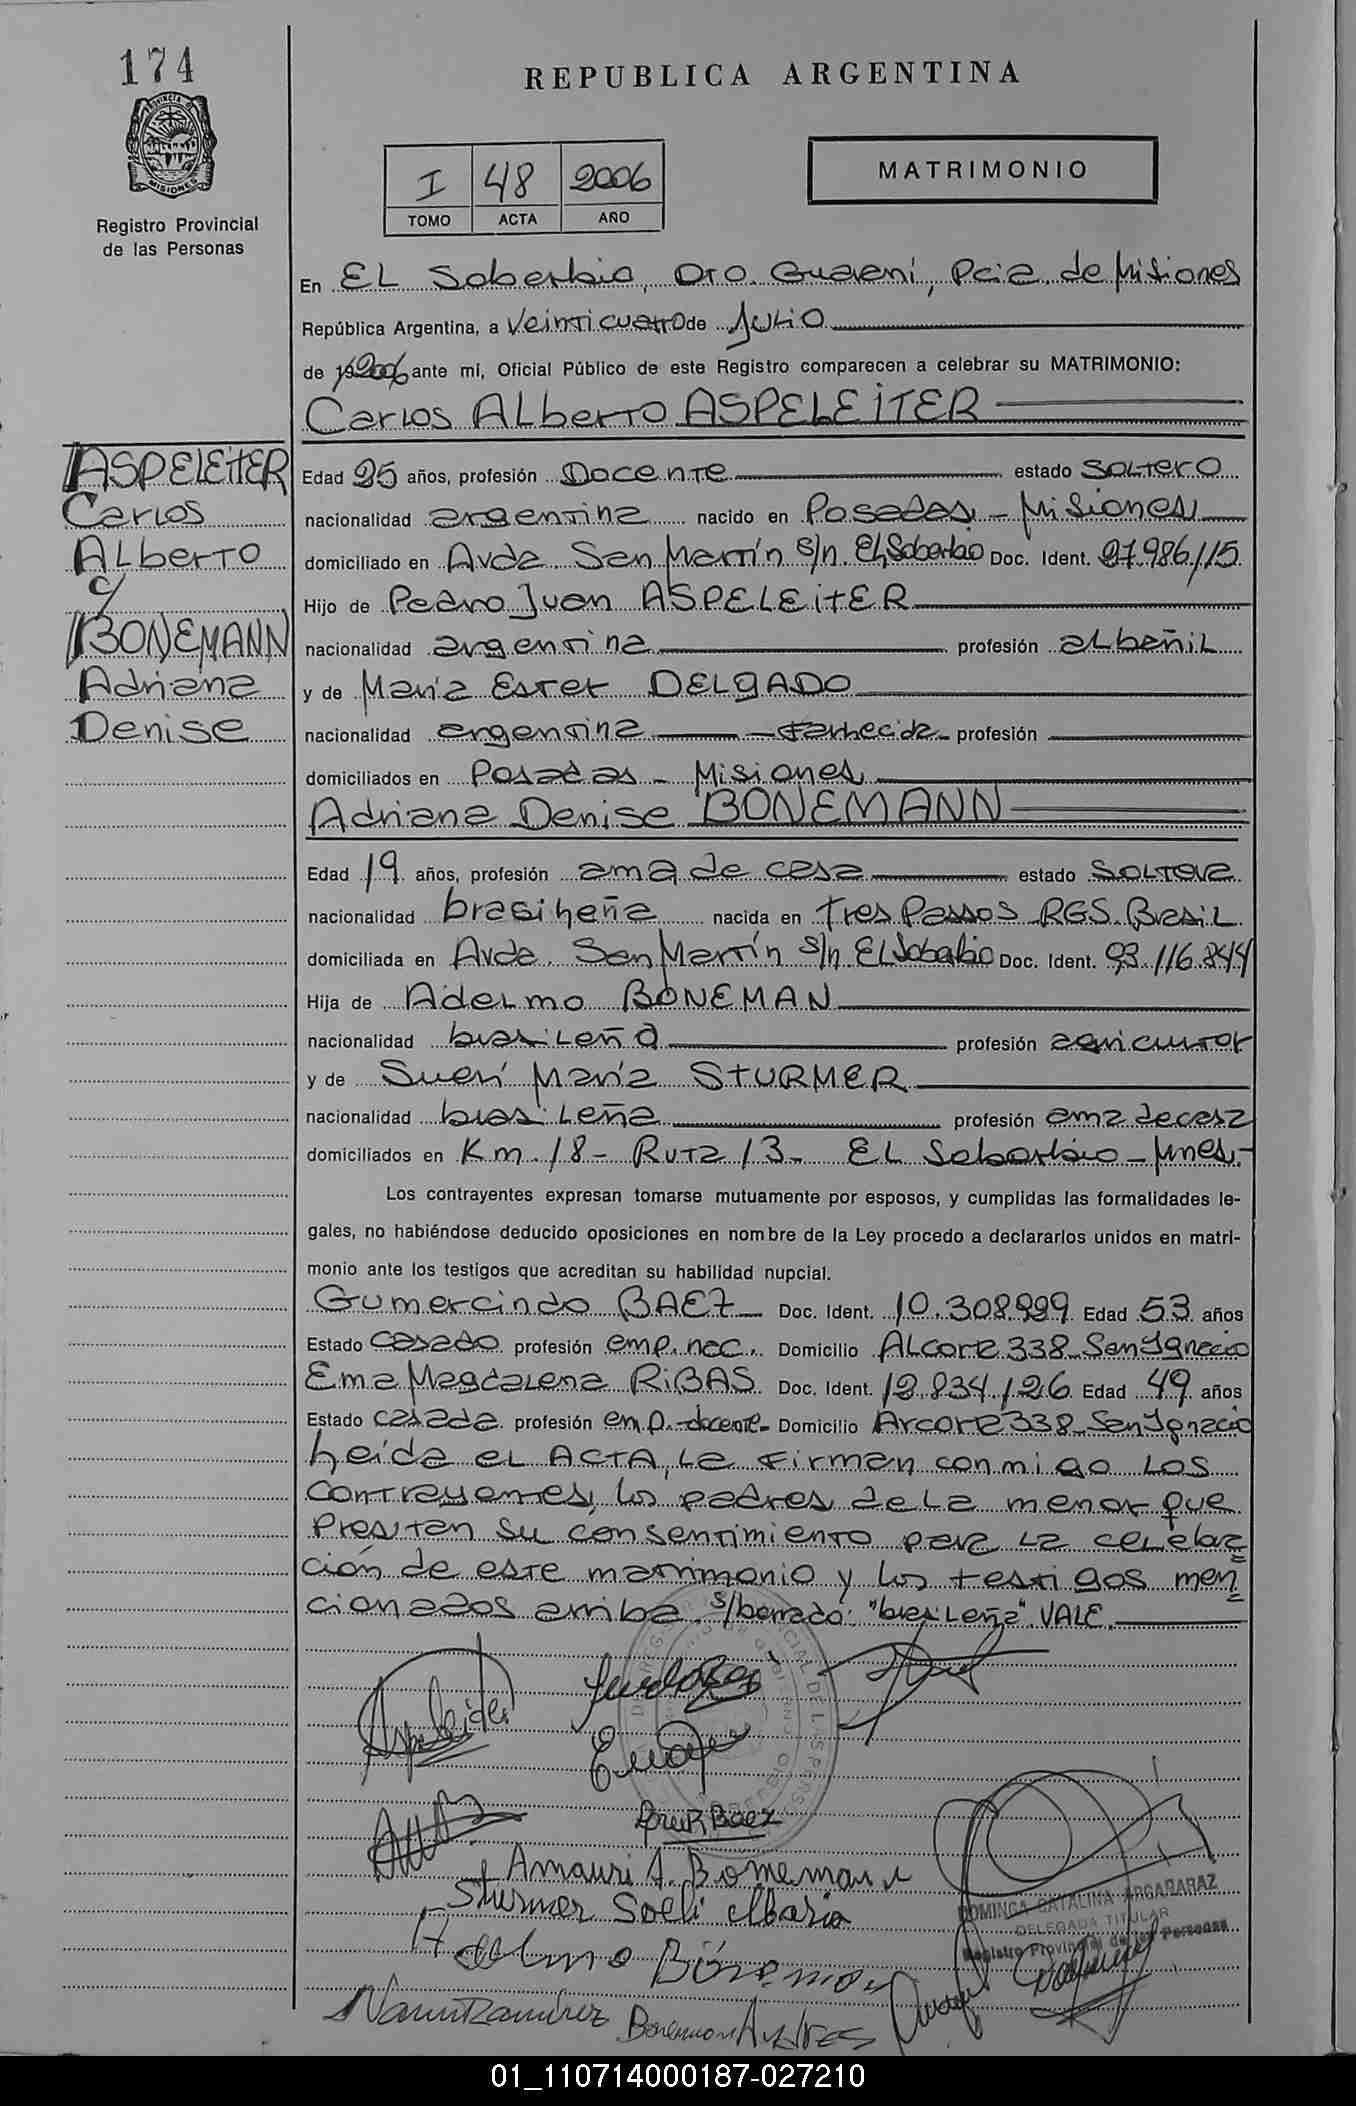 174
PROVINCIA DE
MISIONES
Registro Provincial
de las Personas
REPUBLICA ARGENTINA
I 48 2006
TOMO ACTA AÑO
MATRIMONIO
En EL Soberbio, Dto. Guaraní, Pcia. de Misiones
República Argentina, a Veinticuatro de Julio
de 2006 ante mí, Oficial Público de este Registro comparecen a celebrar su MATRIMONIO:
Carlos Alberto ASPELEITER
ASPELEITER
Carlos
Alberto
c/
BONEMANN
Adriana
Denise
Edad 25 años, profesión Docente estado soltero
nacionalidad argentina nacido en Posadas - Misiones
domiciliado en Avda. San Martín s/n. El Soberbio Doc. Ident. 27.986.115
Hijo de Pedro Juan ASPELEITER
nacionalidad argentina profesión albañil
y de María Ester DELGADO
nacionalidad argentina - fallecida - profesión
domiciliados en Posadas - Misiones
Adriana Denise BONEMANN
Edad 19 años, profesión ama de casa estado soltera
nacionalidad brasileña nacida en Tres Passos RGS. Brasil
domiciliada en Avda. San Martín s/n El Soberbio Doc. Ident. 93.116.844
Hija de Adelmo BONEMAN
nacionalidad brasileña profesión agricultor
y de Suerí María STURMER
nacionalidad brasileña profesión ama de casa
domiciliados en Km. 18 - Ruta 13 - EL Soberbio - Mnes.-
Los contrayentes expresan tomarse mutuamente por esposos, y cumplidas las formalidades le-
gales, no habiéndose deducido oposiciones en nombre de la Ley procedo a declararlos unidos en matri-
monio ante los testigos que acreditan su habilidad nupcial.
Gumercindo BAEZ Doc. Ident. 10.308.999 Edad 53 años
Estado casado profesión emp. nac. Domicilio Alcorta 338 - San Ignacio
Ema Magdalena RIBAS Doc. Ident. 12.834.126 Edad 49 años
Estado casada profesión emp. docente - Domicilio Arcorta 338 - San Ignacio
Leída el ACTA, la firman conmigo los
contrayentes, los padres de la menor que
prestan su consentimiento para la celebra=
ción de este matrimonio y los testigos men=
cionados arriba. s/borrado: "brasileña". VALE.
Aspeleiter
Amauri A. Bonemann
Sturmer Soeli Maria
Adelmo Bonemann
DOMINGA CATALINA ARGARARAZ
DELEGADA TITULAR
Registro Provincial de las Personas
Ramirez
01_110714000187-027210